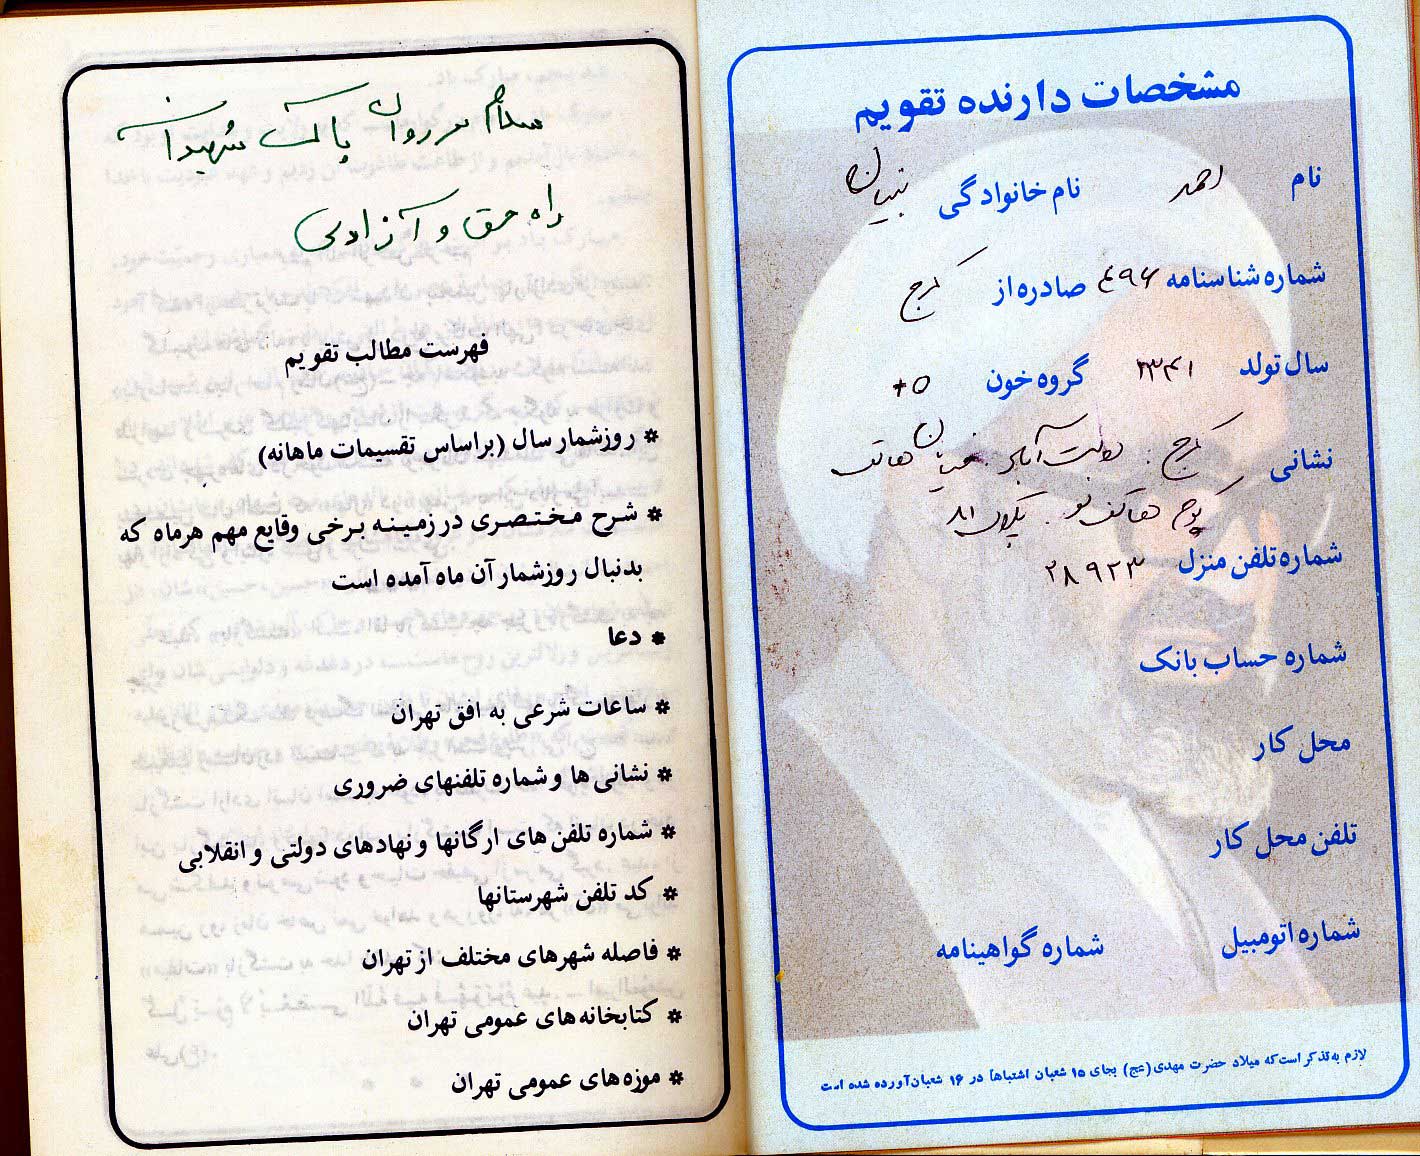 مشخصات دارنده تقویم
نام احمد نام خانوادگی بنیان
شماره شناسنامه ۴۹۶ صادره از کرج
سال تولد ۱۳۴۱ گروه خون O+
نشانی کرج . دولت آباد . خیابان هاتف
کوچه هاتف نو . پلاک ۸۱
شماره تلفن منزل ۲۸۹۲۳
شماره حساب بانک
محل کار
تلفن محل کار
شماره اتومبیل شماره گواهینامه
لازم به تذکر است که میلاد حضرت مهدی (عج) بجای ۱۵ شعبان اشتباهاً در ۱۶ شعبان آورده شده است
سلام بر روان پاک شهیدان
راه حق و آزادی
فهرست مطالب تقویم
* روزشمار سال (براساس تقسیمات ماهانه)
* شرح مختصری در زمینه برخی وقایع مهم هرماه که
بدنبال روزشمار آن ماه آمده است
* دعا
* ساعات شرعی به افق تهران
* نشانی ها و شماره تلفنهای ضروری
* شماره تلفن های ارگانها و نهادهای دولتی و انقلابی
* کد تلفن شهرستانها
* فاصله شهرهای مختلف از تهران
* کتابخانه های عمومی تهران
* موزه های عمومی تهران